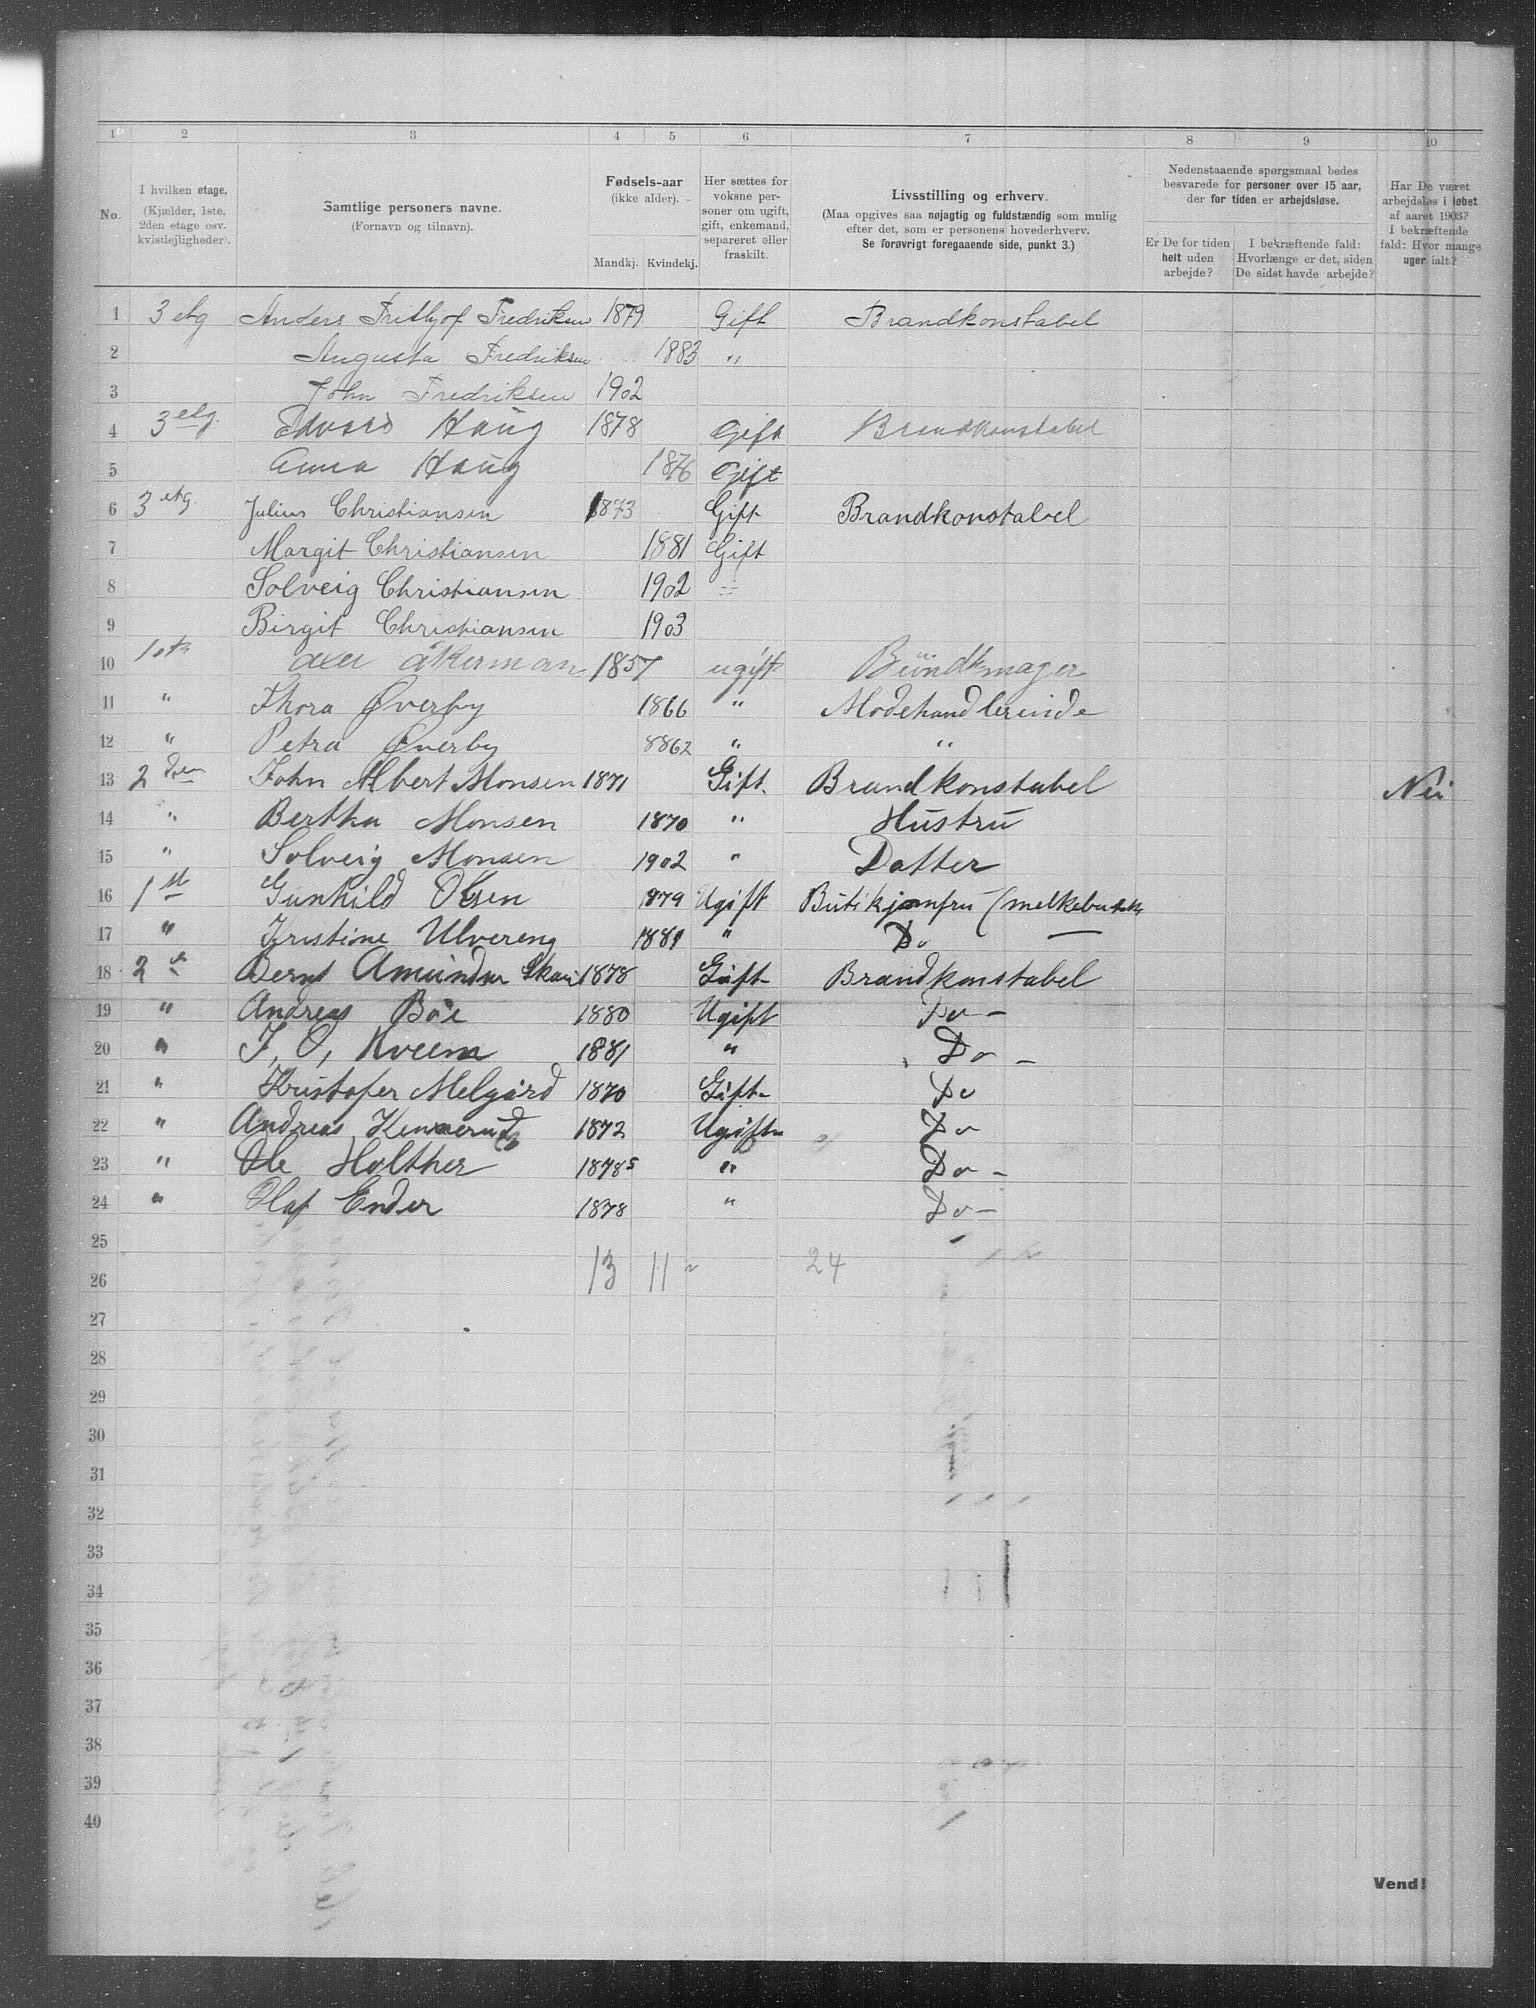 1 2 3 4 5 6 7 8 9 10
No.
I hvilken etage.
(Kjælder, 1ste, 2den etage osv. kvistlejligheder).
Samtlige personers navne.
(Fornavn og tilnavn).
Fødsels-aar
(ikke alder).
Mandkj. Kvindekj.
Her sættes for voksne personer om ugift, gift, enkemand, separeret eller fraskilt.
Livsstilling og erhverv.
(Maa opgives saa nøjagtig og fuldstændig som mulig efter det, som er personens hovederhverv.
Se forøvrigt foregaaende side, punkt 3.)
Nedenstaaende spørgsmaal bedes besvarede for personer over 15 aar, der for tiden er arbejdsløse.
Er De for tiden helt uden arbejde?
I bekræftende fald: Hvorlænge er det, siden De sidst havde arbejde?
Har De været arbejdsløs i løbet af aaret 1903? I bekræftende fald: Hvor mange uger ialt?
1 3 etg Anders Frithjof Fredriksen 1879 Gift Brandkonstabel
2 Augusta Fredriksen 1883 "
3 John Fredriksen 1902
4 3 etg. Edvard Haug 1878 Gift Brandkonstabel
5 Anna Haug 1876 Gift
6 3 etg. Julius Christiansen 1873 Gift Brandkonstabel
7 Margit Christiansen 1881 Gift
8 Solveig Christiansen 1902 "
9 Birgit Christiansen 1903
10 åkerman 1857 ugift Bundtmager
11 " Thora Øverby 1866 " Modehandlerinde
12 " Petra Øverby 8862 " "
13 2den John Albert Monsen 1871 Gift. Brandkonstabel Nei
14 " Bertha Monsen 1870 " Hustru
15 " Solveig Monsen 1902 " Datter
16 1st Gunhild Olsen 1879 Ugift Butikjomfru (melkebutik
17 " Kristine Ulvereng 1881 " Do —
18 2 Bernt Amundsen 1878 Gift Brandkonstabel
19 " Andreas Bøe 1880 Ugift Do -
20 " J, O, Kveem 1881 " Do -
21 " Kristofer Melgård 1870 Gift Do
22 " Andreas 1872 Ugift Do
23 " Ole Holther 1878 " Do -
24 " Olaf Ender 1878 " Do -
25
26 13 11 24
27
28
29
30
31
32
33
34
35
36
37
38
39
40
Vend!